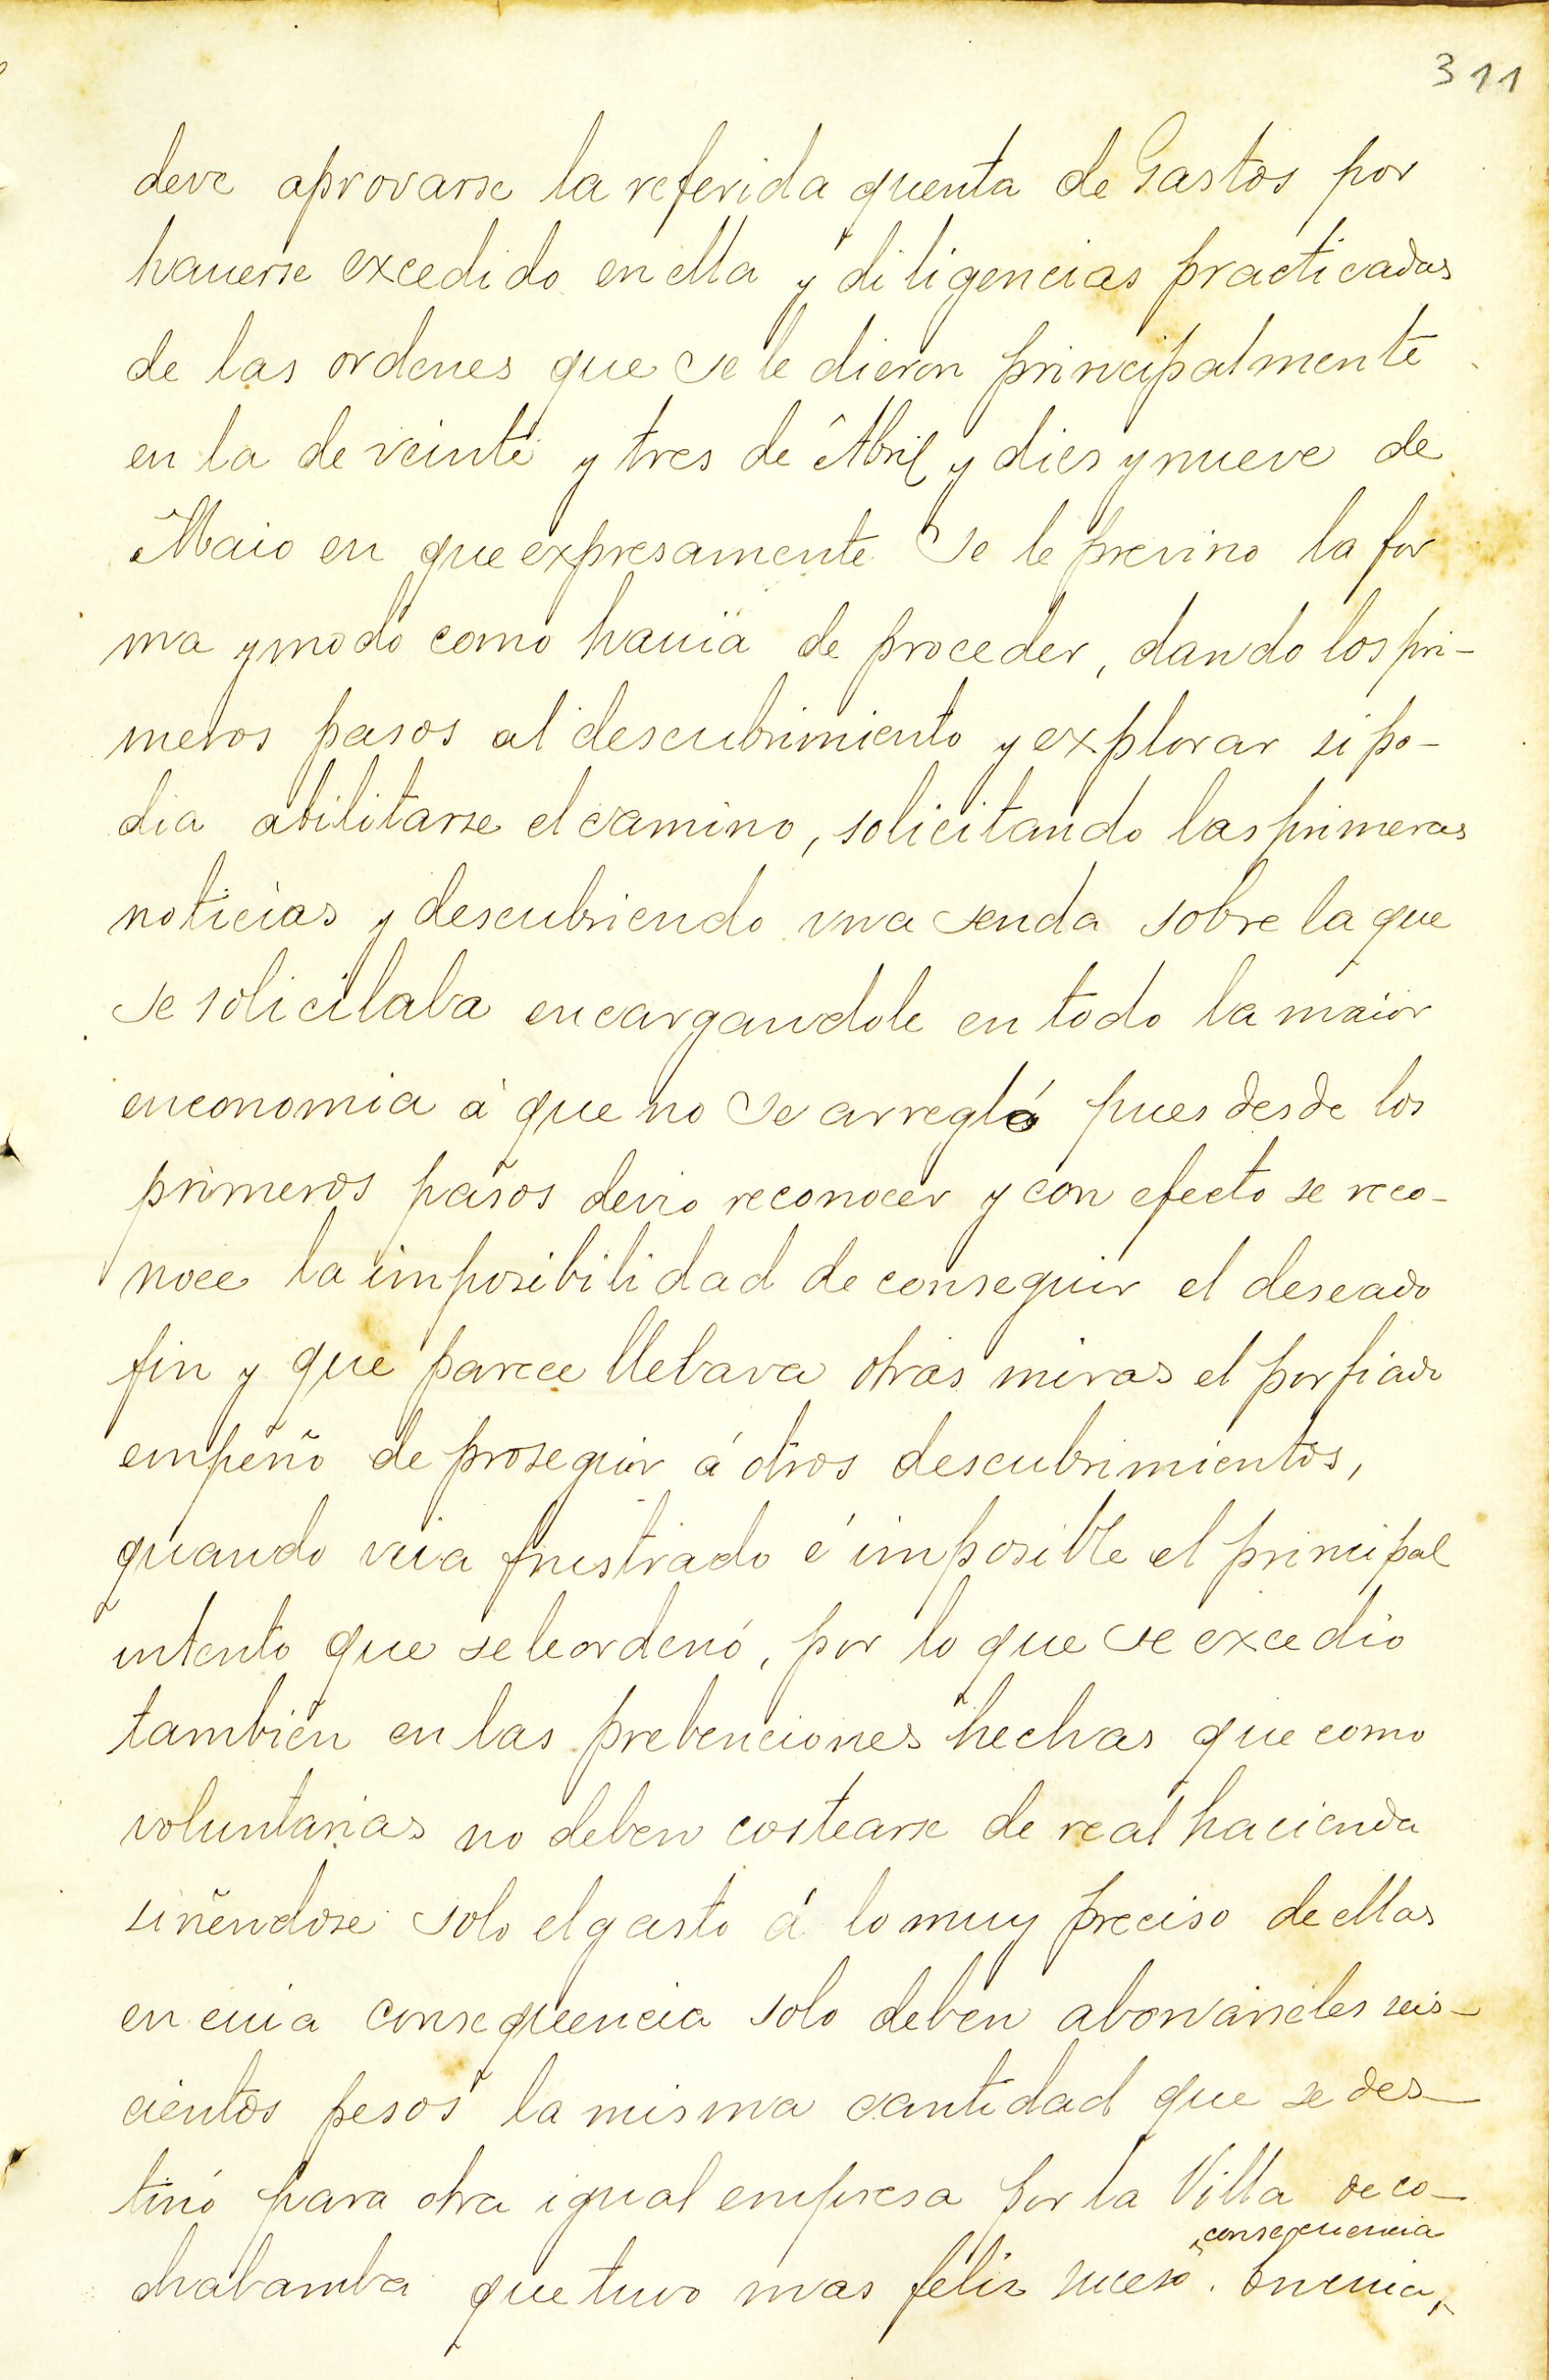 311
deve aprovarse la referida quenta de Gastos por
hauerse excedido en ella y diligencias practicadas
de las ordenes que se le dieron principalmente
en la de veinte y tres de Abril y dies y nueve de
Maio en que expresamente se le previno la for
ma y modo como hauia de proceder, dando los pri-
meros pasos al descubrimiento y explorar si po-
dia abilitarse el camino, solicitando las primeras
noticias y descubriendo una senda sobre la que
se solicitaba encargandole en todo la maior
enconomia á que no se arregló pues desde los
primeros pasos devio reconocer y con efecto se reco-
noce la imposibilidad de conseguir el deseado
fin y que parece llebava otras miras el porfiado
empeño de proseguir á otros descubrimientos,
quando veia frustrado é imposible el principal
intento que se le ordenó, por lo que se excedio
tambien en las prebenciones hechas que como
voluntarias no deben costearse de real hacienda
siñendose solo el gasto á lo muy preciso de ellas
en cuia consequencia solo deben abonarseles seis-
cientos pesos la misma cantidad que se des-
tinó para otra igual empresa por la Villa de co-
chabamba que tuvo mas feliz suceso. En cuia
consequencia